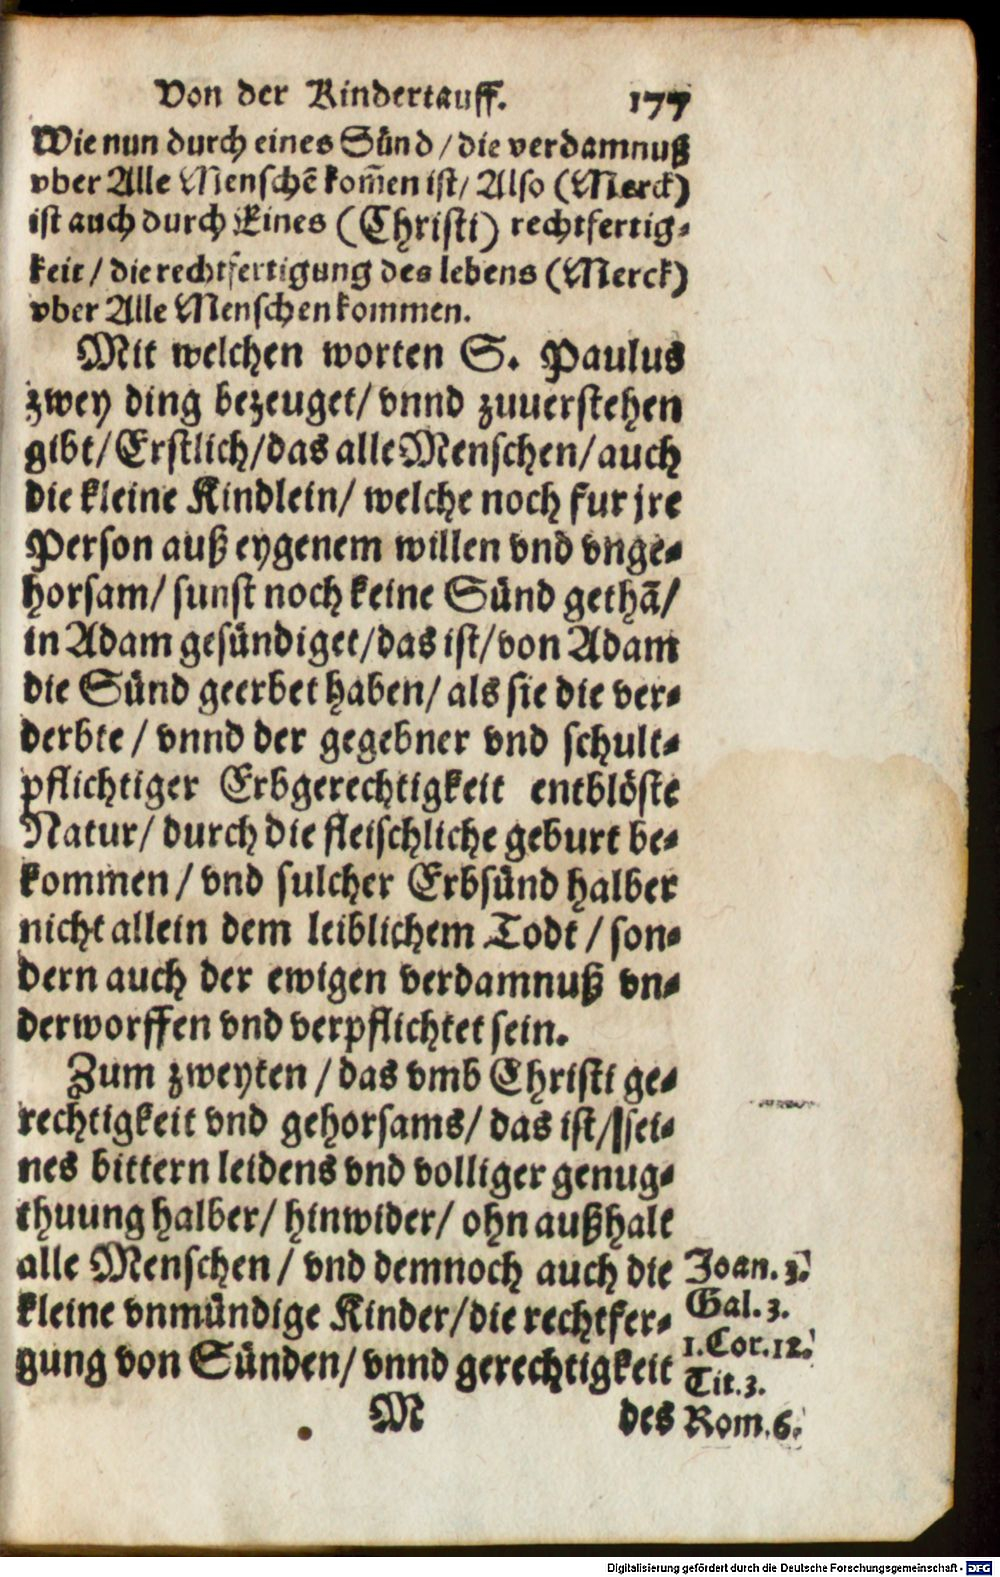 Von der Kindertauff. 177
Wie nun durch eines Sünd / die verdamnuß
vber Alle Menschẽ kom̃en ist / Also (Merck)
ist auch durch Eines (Christi) rechtfertig-
keit / die rechtfertigung des lebens (Merck)
vber Alle Menschen kommen.
Mit welchen worten S. Paulus
zwey ding bezeuget / vnnd zuuerstehen
gibt / Erstlich / das alle Menschen / auch
die kleine Kindlein / welche noch fur jre
Person auß eygenem willen vnd vnge-
horsam / sunst noch keine Sünd gethã /
in Adam gesündiget / das ist / von Adam
die Sünd geerbet haben / als sie die ver-
derbte / vnnd der gegebner vnd schult-
pflichtiger Erbgerechtigkeit entblöste
Natur / durch die fleischliche geburt be-
kommen / vnd sulcher Erbsünd halber
nicht allein dem leiblichem Todt / son-
dern auch der ewigen verdamnuß vn-
derworffen vnd verpflichtet sein.
Zum zweyten / das vmb Christi ge-
rechtigkeit vnd gehorsams / das ist / sei-
nes bittern leidens vnd volliger genug-
thuung halber / hinwider / ohn außhalt
alle Menschen / vnd demnoch auch die
kleine vnmündige Kinder / die rechtfer-
gung von Sünden / vnnd gerechtigkeit
Joan. 3.
Gal. 3.
1. Cor. 12.
Tit. 3.
Rom. 6.
M des
Digitalisierung gefördert durch die Deutsche Forschungsgemeinschaft - DFG